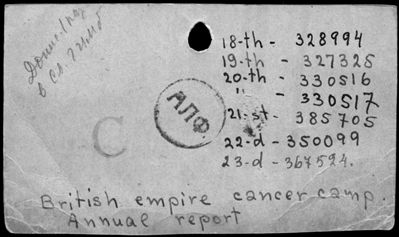 18-th - 328994
19-th - 327325
20-th - 330516
" - 330517
21-st - 385705
22-d - 350099
23-d - 367594.
АПФ
С
British empire cancer camp.
Annual report